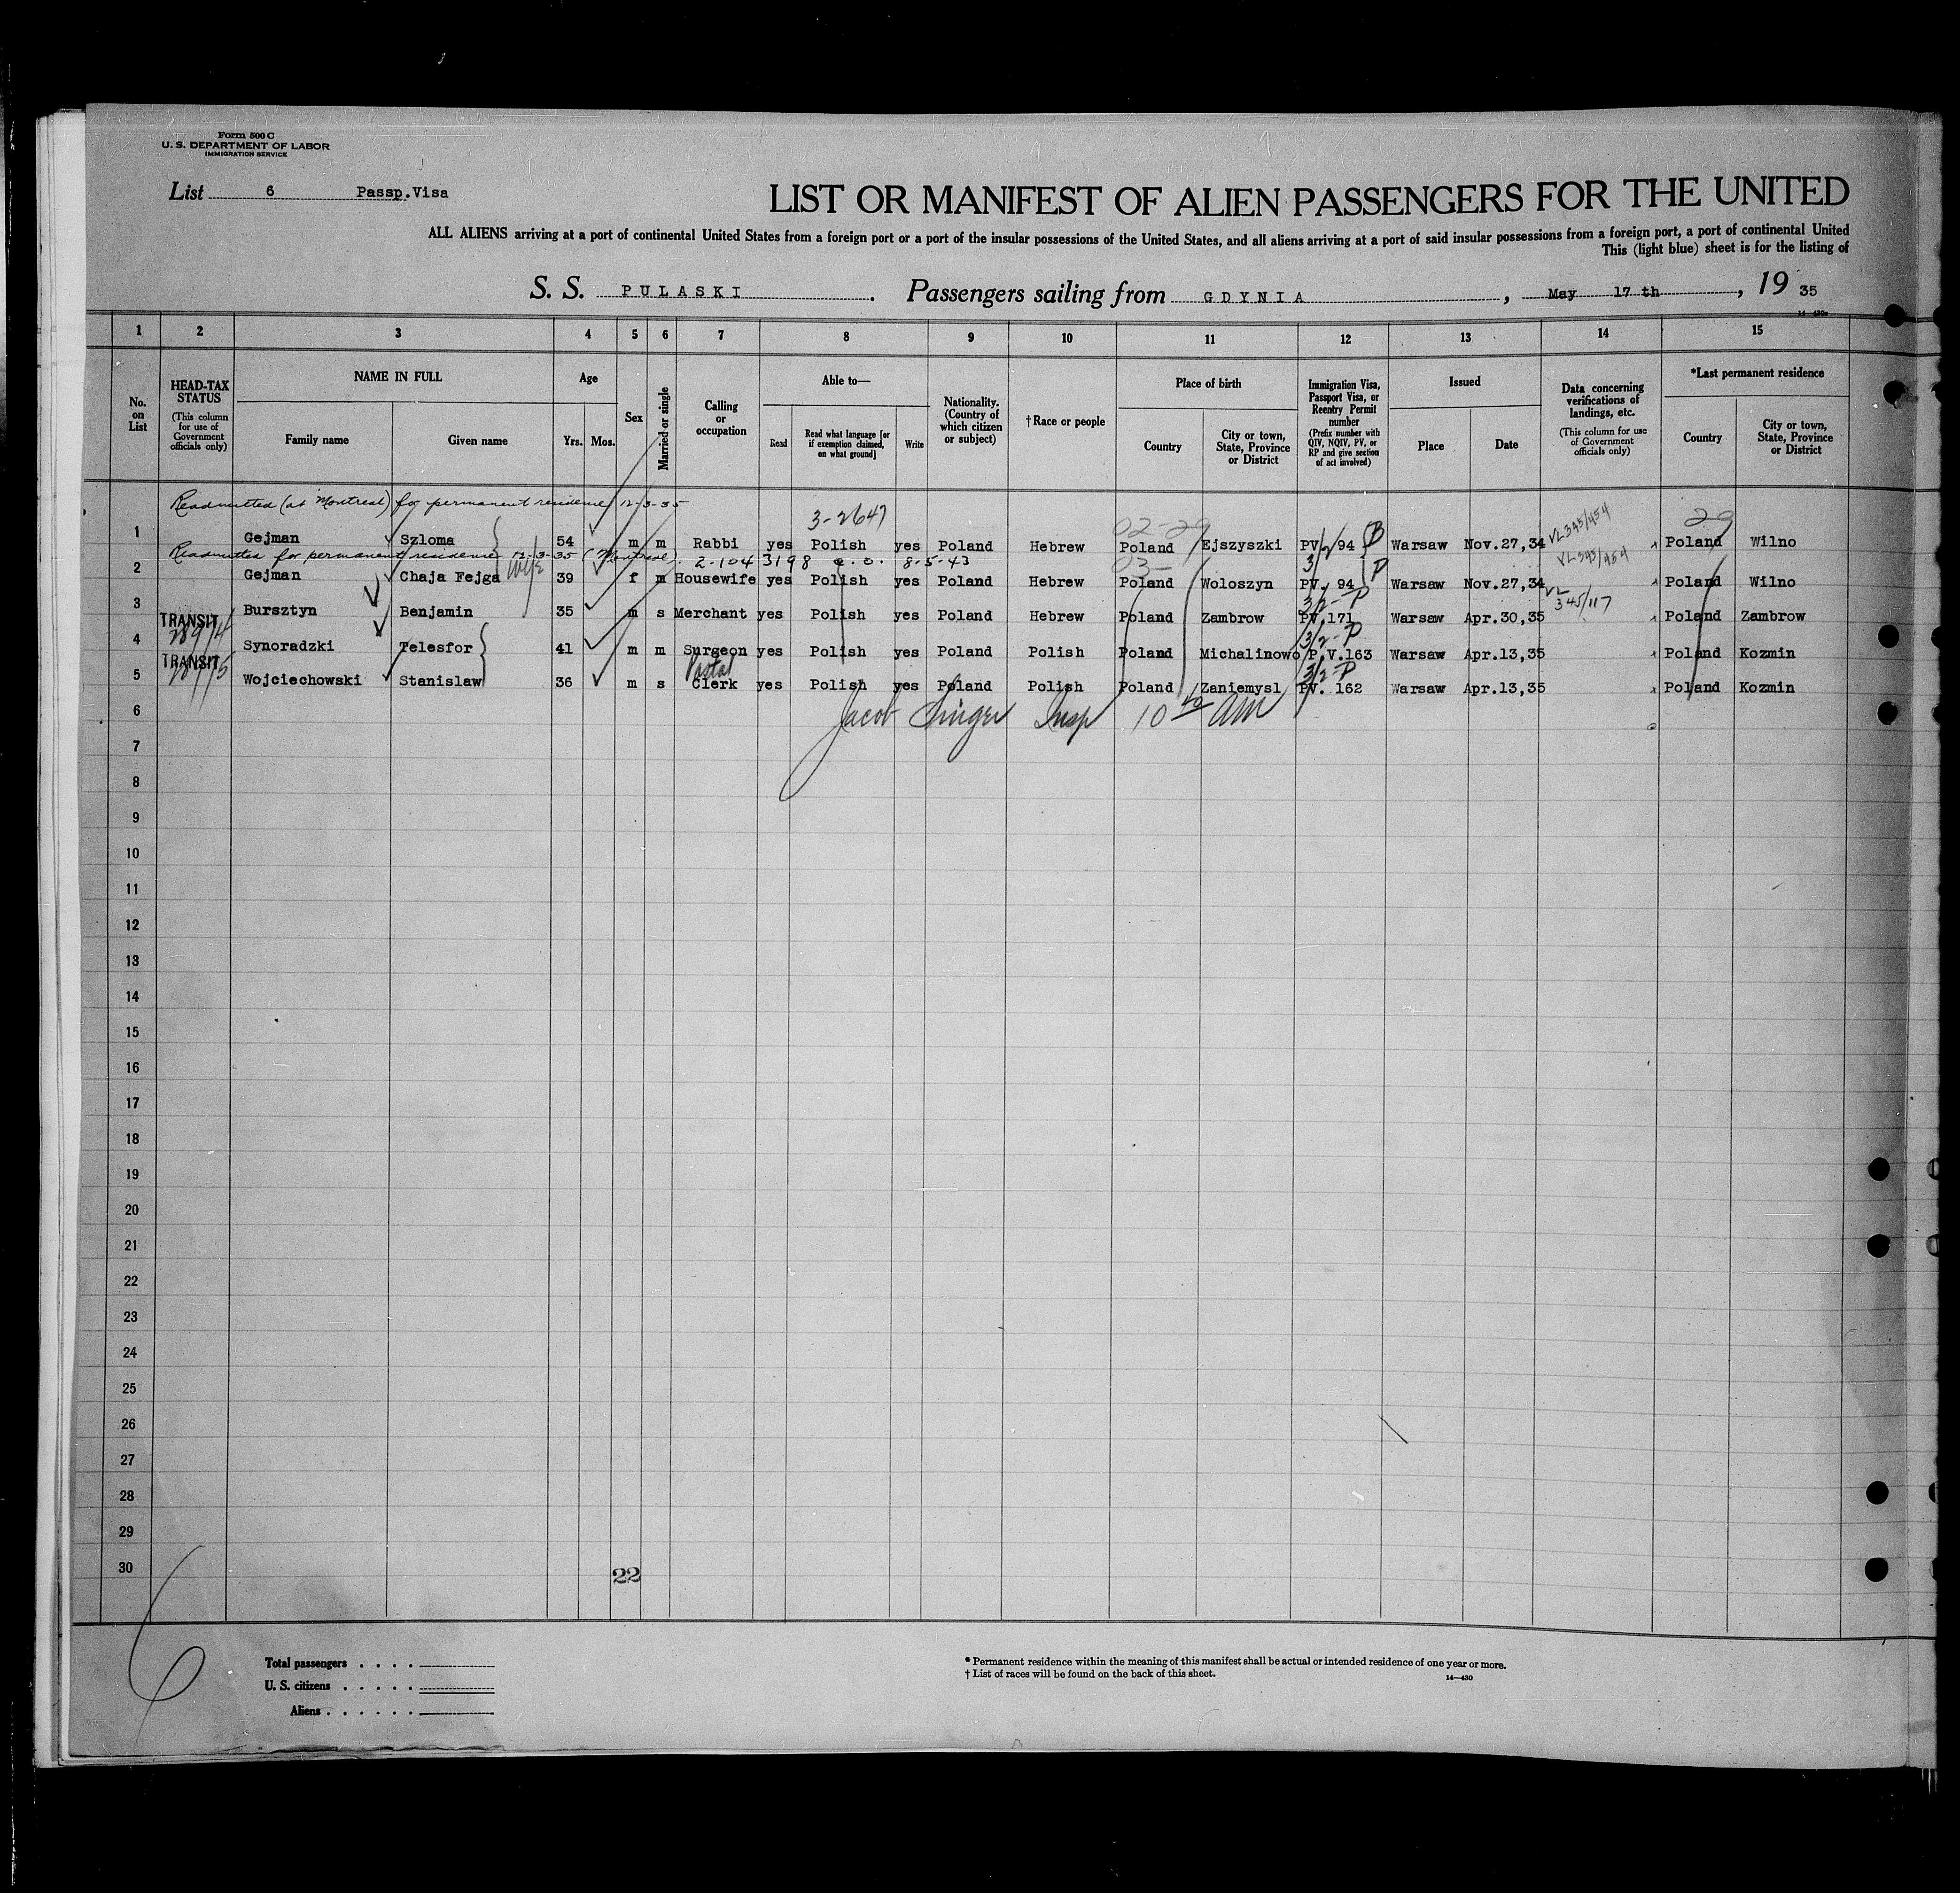 Form 500 C
U. S. DEPARTMENT OF LABOR
IMMIGRATION SERVICE
List 6 Passp.Visa
LIST OR MANIFEST OF ALIEN PASSENGERS FOR THE UNITED
ALL ALIENS arriving at a port of continental United States from a foreign port or a port of the insular possessions of the United States, and all aliens arriving at a port of said insular possessions from a foreign port, a port of continental United
This (light blue) sheet is for the listing of
S. S. PULASKI. Passengers sailing from GDYNIA, May 17 th, 19 35
1 2 3 4 5 6 7 8 9 10 11 12 13 14 15
No. on List
HEAD-TAX STATUS (This column for use of Government officials only)
NAME IN FULL Family name Given name
Age Yrs. Mos.
Sex
Married or single
Calling or occupation
Able to— Read Read what language [or if exemption claimed, on what ground] Write
Nationality. (Country of which citizen or subject)
† Race or people
Place of birth Country City or town, State, Province or District
Immigration Visa, Passport Visa, or Reentry Permit number (Prefix number with QIV, NQIV, PV, or RP and give section of act involved)
Issued Place Date
Data concerning verifications of landings, etc. (This column for use of Government officials only)
*Last permanent residence Country City or town, State, Province or District
Readmitted (at Montreal) for permanent residence 12-3-35
3-2647 02-29 29
1 Gejman Szloma 54 m m Rabbi yes Polish yes Poland Hebrew Poland Ejszyszki PV 94 Warsaw Nov.27,34 Poland Wilno
Readmitted for permanent residence 12-3-35 (Montreal). 2-104 3198 8-5-43 03-
2 Gejman Chaja Fejga Wife 39 f m Housewife yes Polish yes Poland Hebrew Poland Woloszyn PV. 94 Warsaw Nov.27,34 Poland Wilno
3 Bursztyn Benjamin 35 m s Merchant yes Polish yes Poland Hebrew Poland Zambrow PV.171 Warsaw Apr.30,35 VL 345/117 Poland Zambrow
TRANSIT
4 Synoradzki Telesfor 41 m m Surgeon yes Polish yes Poland Polish Poland Michalinowo P.V.163 Warsaw Apr.13,35 Poland Kozmin
TRANSIT
5 Wojciechowski Stanislaw 36 m s Postal Clerk yes Polish yes Poland Polish Poland Zaniemysl PV. 162 Warsaw Apr.13,35 Poland Kozmin
6 Jacob Singer Insp 10 AM
7
8
9
10
11
12
13
14
15
16
17
18
19
20
21
22
23
24
25
26
27
28
29
30
22
6
Total passengers . . . .
U. S. citizens . . . . .
Aliens . . . . . .
* Permanent residence within the meaning of this manifest shall be actual or intended residence of one year or more.
† List of races will be found on the back of this sheet.
14—430